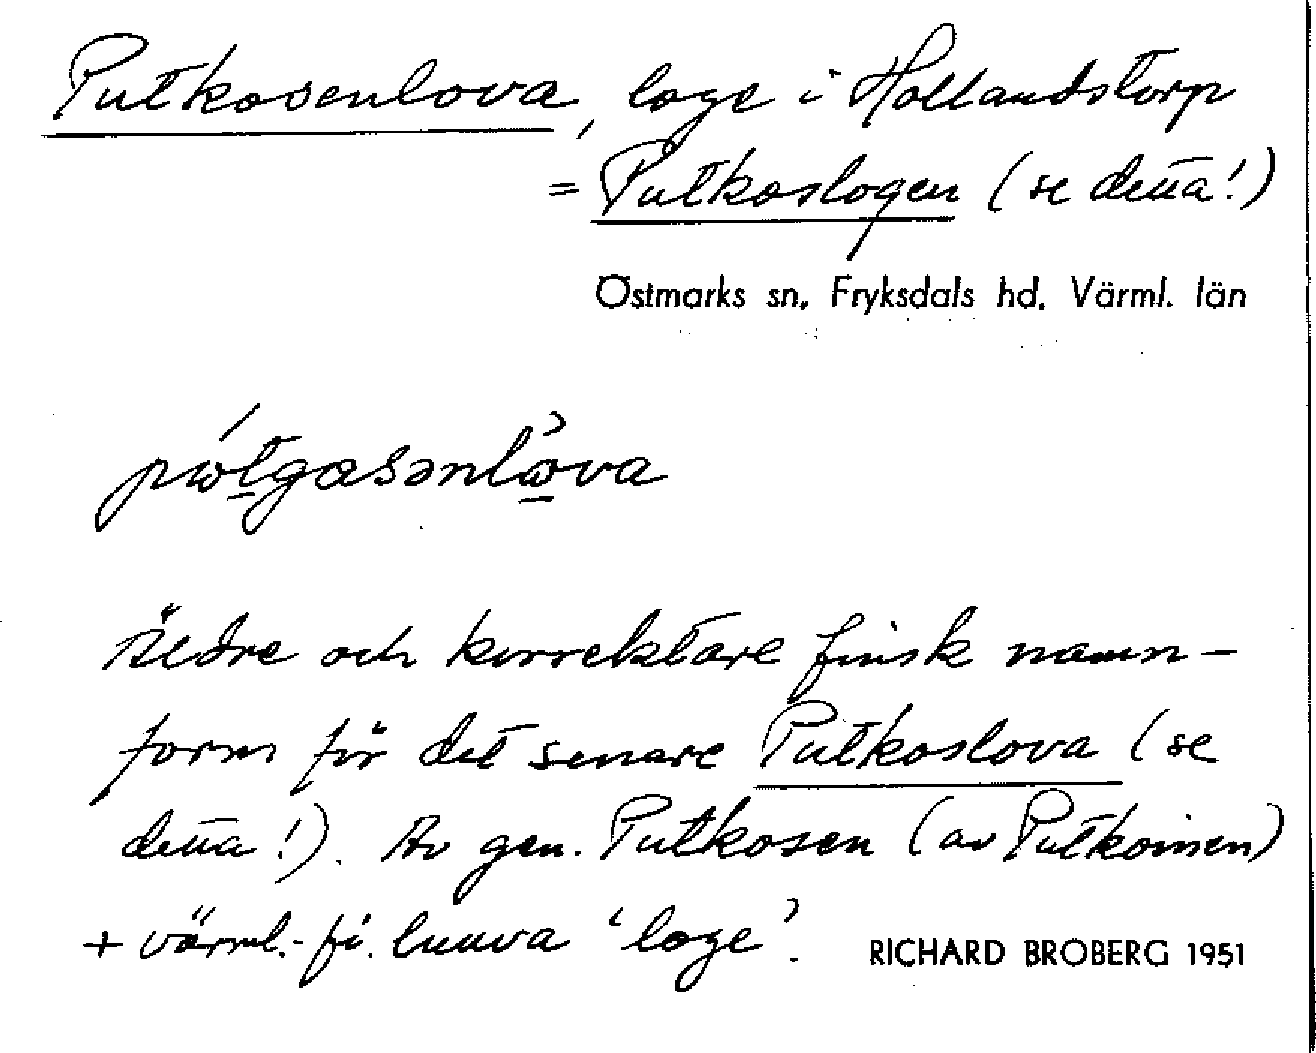 Putkosenlova, loge i Hollandstorp
= Putkoslogen (se detta!)
Östmarks sn, Fryksdals hd, Värml. län
Äldre och korrektare finsk namn-
form för det senare Putkoslova (se
detta!). Av gen. Putkosen (av Putkoinen)
+ värml.-fi. luuva 'loge'.
RICHARD BROBERG 1951